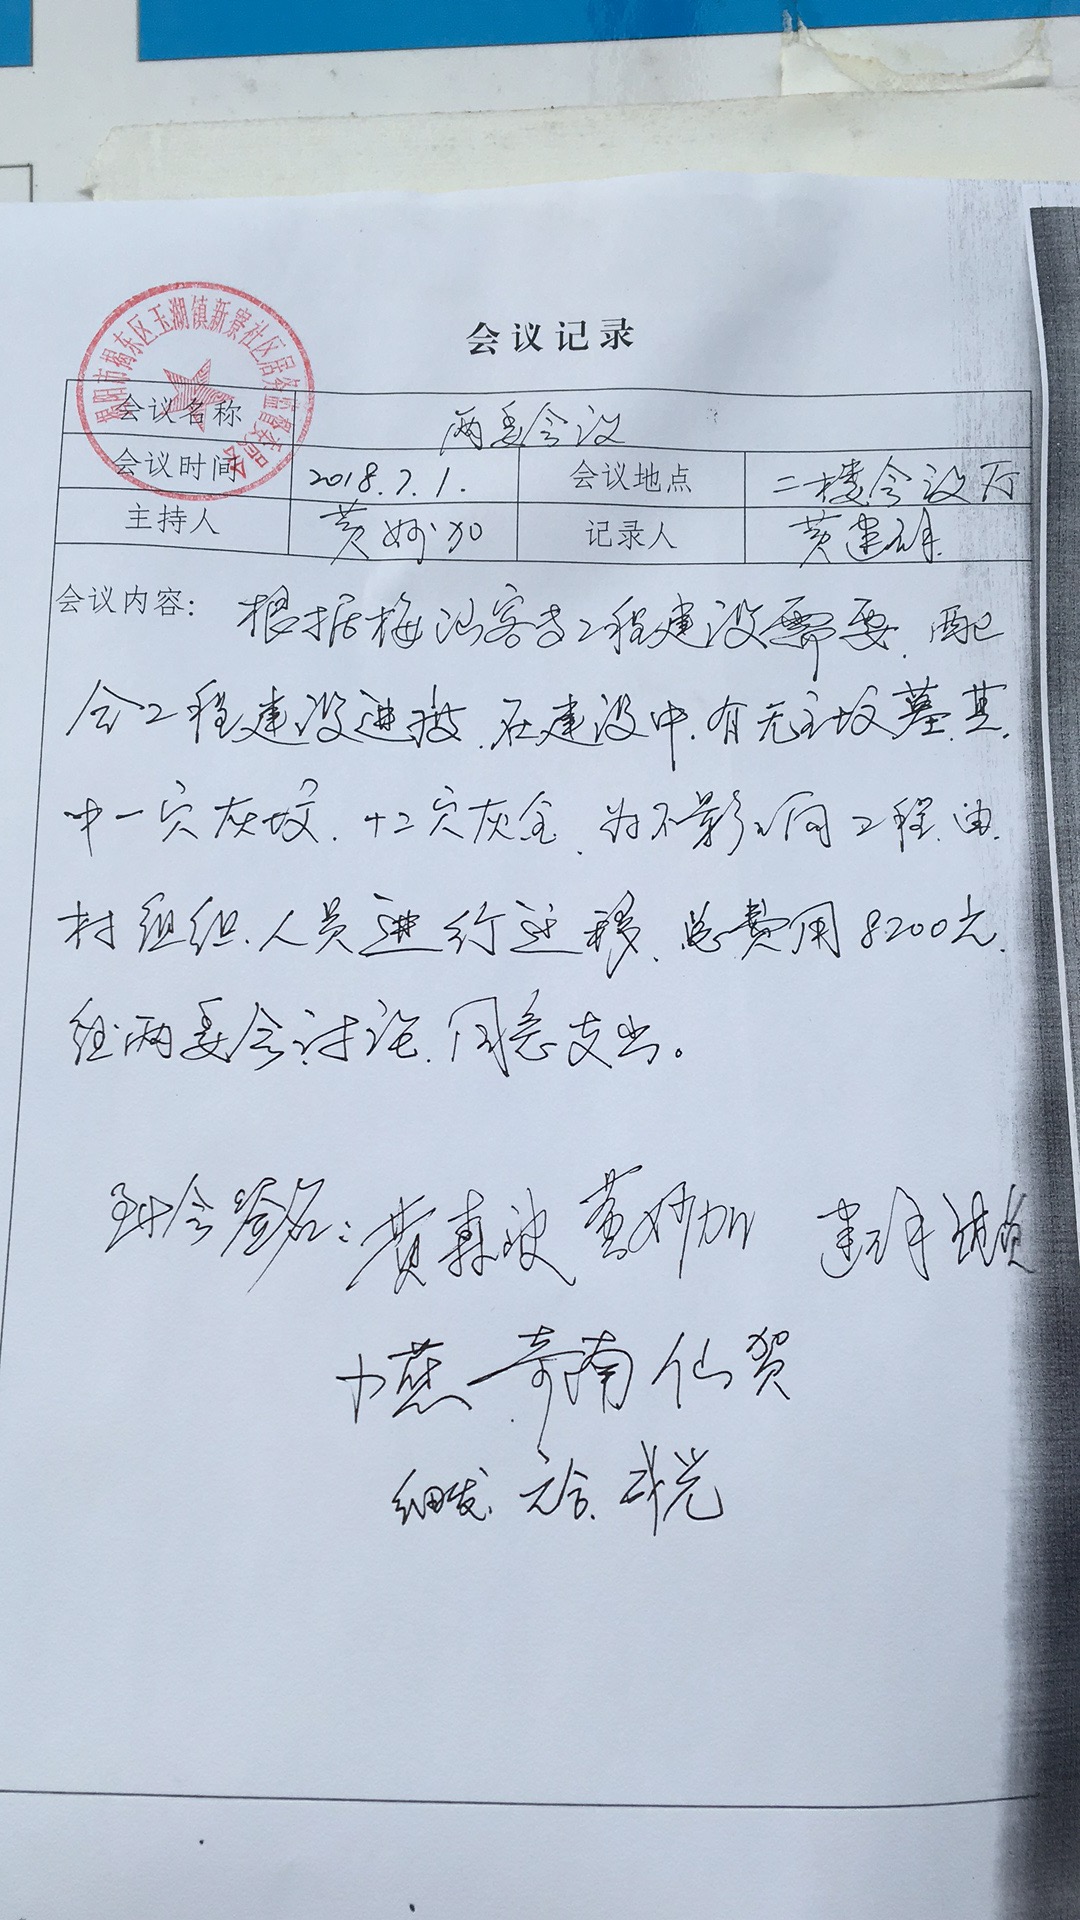 揭阳市揭东区玉湖镇新寮社区居务监督委员会
会议记录
会议名称 两委会议
会议时间 2018.7.1. 会议地点 二楼会议厅
主持人 黄妙加 记录人 黄建
会议内容: 根据梅汕客专工程建设需要,配
合工程建设进按,在建设中,有无主坟墓,其
中一穴灰坟,十二穴灰金,为不影响工程,由
村组织人员进行迁移,总费用8200元,
经两委会讨论,同意支出。
到会签名: 黄 黄妙加 建
奇南 仙贺
细发 元合